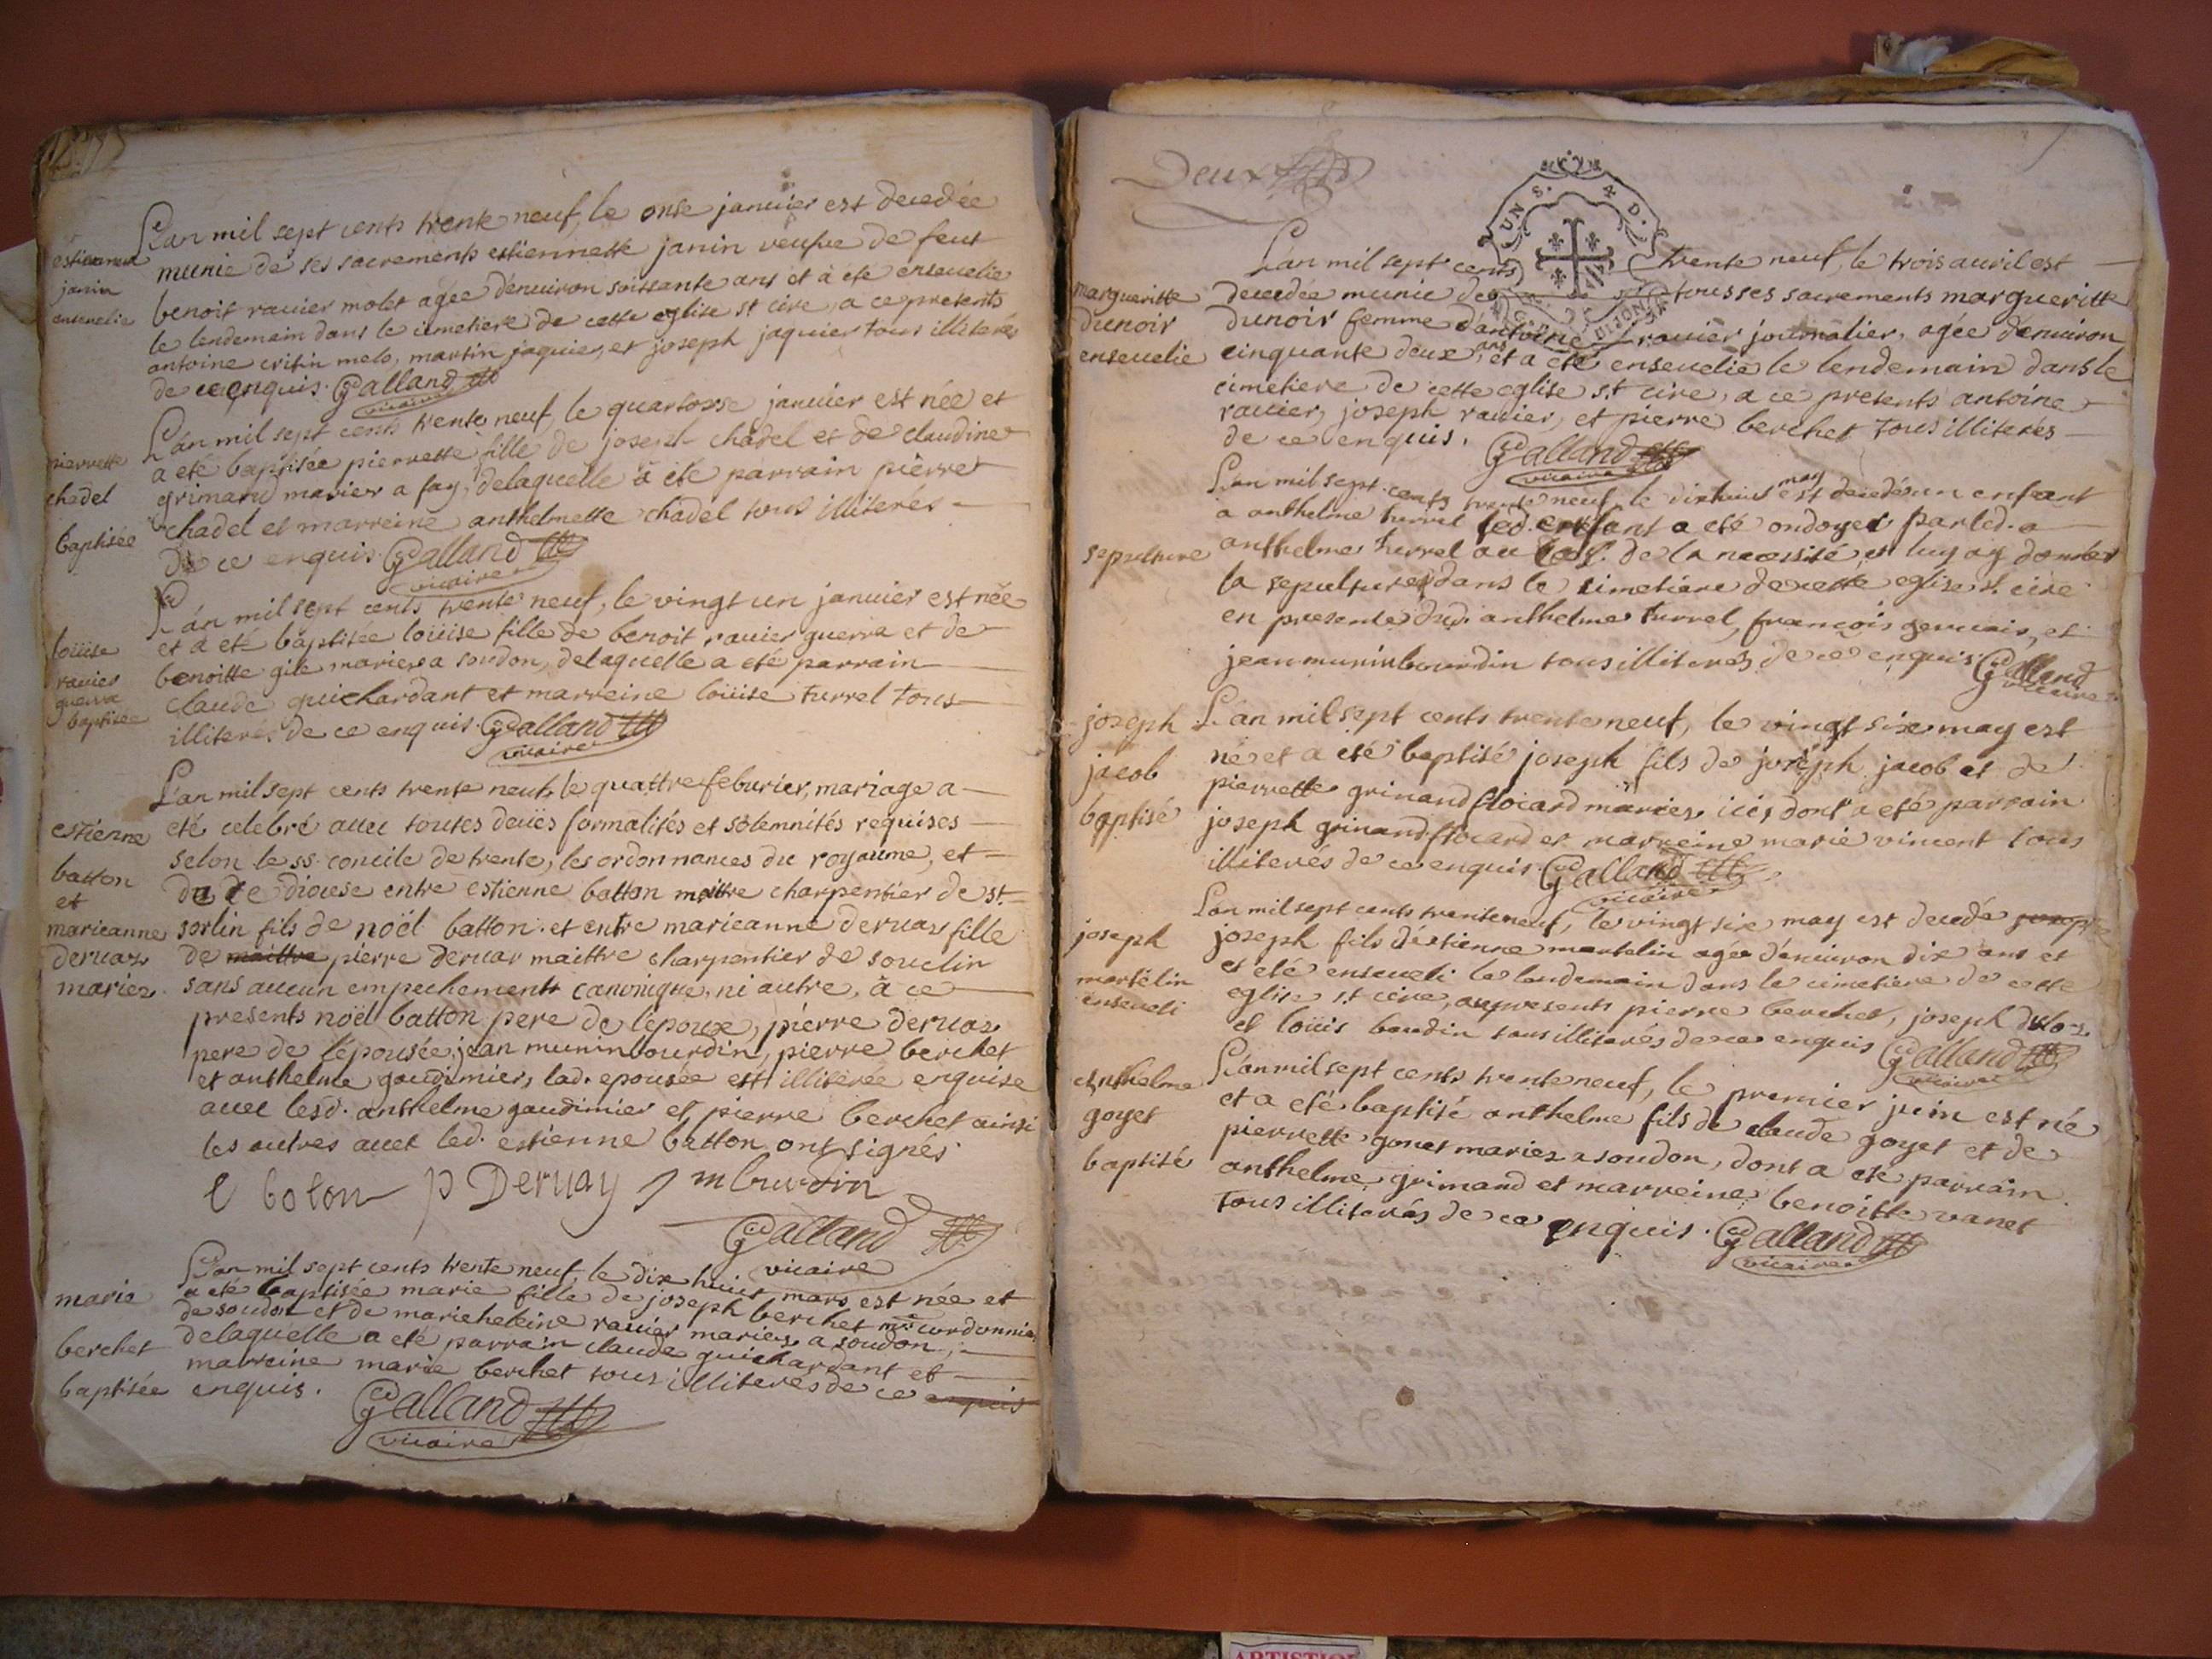 L'an mil sept cents trente neuf, le onse janvier est decedée
estiennette
janin
ensevelie
munie de ses sacrements estiennette janin veufve de feut
benoit ravier molet agée d'environ soissante ans et à eté ensevelie
le lendemain dans le cimetiere de cette eglise st cire, a ce presents
antoine critin melo, martin jaquier, et joseph jaquier tous illiterés
de ce enquis. Galland
vicaire
L'an mil sept cents trente neuf, le quartorse janvier est née et
pierrette
chadel
baptisée
a eté baptisée pierrette fille de joseph chadel et de claudine
grimand marier a fay, delaquelle a eté parrain pierre
chadel et marreine anthelmette chadel tous illiterés
de ce enquis. Galland
vicaire
L'an mil sept cents trente neuf, le vingt un janvier est née
loüise
ravier
guerra
baptisée
et a eté baptisée loüise fille de benoit ravier guerra et de
benoitte gile mariers a soudon, delaquelle a eté parrain
claude guichardant et marreine loüise turrel tous
illiterés de ce enquis. Galland
vicaire
L'an mil sept cents trente neuf, le quattre feburier, mariage a
estienne
batton
et
marieanne
dervaz
mariez
eté celebré avec toutes deües formalités et solemnités requises
selon le ss. concile de trente, les ordonnances du royaume, et
de ce diocese entre estienne batton maittre charpentier de st.
sorlin fils de noël batton. et entre marieanne dervaz fille
de maittre pierre dervar maittre charpentier de souclin
sans aucun empechement canonique, ni autre, à ce
presents noël batton pere de l'epoux, pierre dervaz
pere de l'epousée, jean munin bourdin, pierre berchet
et anthelme gaudimier, lad. epousée est illiterée enquise
avec lesd. anthelme gaudimier et pierre berchet ainsi
les autres avec led. estienne batton ont signés
e boton p Dervay j m burdin
Galland
vicaire
L'an mil sept cents trente neuf, le dix huict mars est née et
marie
berchet
baptisée
a eté baptisée marie fille de joseph berchet mtre cordonnier
de soudon et de marieheleine ravier mariers a soudon,
delaquelle a eté parrain claude guichardant et
marreine marie berchet tous illiterés de ce enquis
enquis. Galland
vicaire
Deux
UN S. 4 D.
DIJON
L'an mil sept cents trente neuf, le trois avril est
margueritte
dunoir
ensevelie
decedée munie de tous ses sacrements margueritte
dunoir femme d'antoine ravier journalier, agée d'environ
cinquante deux ans, et a eté ensevelie le lendemain dans le
cimetiere de cette eglise s.t cire, a ce presents antoine
ravier, joseph ravier, et pierre berchet tous illiterés
de ce enquis. Galland
vicaire
L'an mil sept cents trente neuf, le dixhuit may est decedé un enfant
sepulture
a anthelme turrel led. enfant a eté ondoyer par led.
anthelme turrel au cas de la necessité, et luy ay donner
la sepulture dans le cimetiere de cette eglise st. cire
en presence dud. anthelme turrel, françois gervais, et
jean munin bourdin tous illiterés de ce enquis. Galland
vicaire
joseph
jacob
baptisé
L'an mil sept cents trente neuf, le vingt six may est
né et a eté baptisé joseph fils de joseph jacob et de
pierrette grinand flocard mariers icis dont a eté parrain
joseph grinand flocard et marreine marie vincent tous
illiterés de ce enquis. Galland
vicaire
L'an mil sept cents trente neuf, le vingt six may est decedé joseph
joseph
martélin
enseveli
joseph fils d'estienne martelin agée d'environ dix ans et
et eté enseveli le lendemain dans le cimetiere de cette
eglise s.t cire, aux presents pierre berchet, joseph
et loüis boudin tous illiterés de ce enquis Galland
vicaire
anthelme
goyet
baptisé
L'an mil sept cents trente neuf, le premier juin est né
et a eté baptisé anthelme fils de claude goyet et de
pierrette gonet mariez a soudon, dont a eté parrain
anthelme grimand et marreine benoitte vanet
tous illiterés de ce enquis. Galland
vicaire